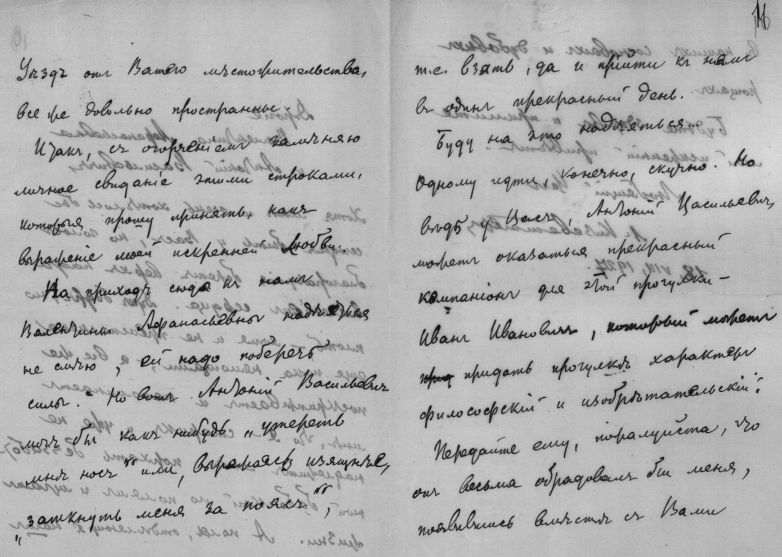 Уѣздъ отъ Вашего мѣстожительства,
все же довольно пространный.
Итакъ, съ огорченіемъ замѣняю
личное свиданіе этими строками,
которыя прошу принять какъ
выраженіе моей искренней любви.
На приходъ сюда къ намъ
Валентины Афанасьевны надѣяться
не смѣю, ей надо поберечь
силы. Но вотъ Антоній Васильевичъ
могъ бы какъ нибудь „утереть
мнѣ носъ“ или, выражаясь изящнѣе,
„заткнуть меня за поясъ“,
11
т.е. взять, да и прійти къ намъ
въ одинъ прекрасный день.
Буду на это надѣяться.
Одному идти, конечно, скучно. Но
вѣдь у Васъ, Антоній Васильевич,
можетъ оказаться прекрасный
компаніонъ для этой прогулки –
Иванъ Ивановичъ, который можетъ
придать прогулкѣ характеръ
философскій и изобрѣтательскій.
Передайте ему, пожалуйста, что
онъ весьма обрадовалъ бы меня,
появившись вмѣстѣ съ Вами